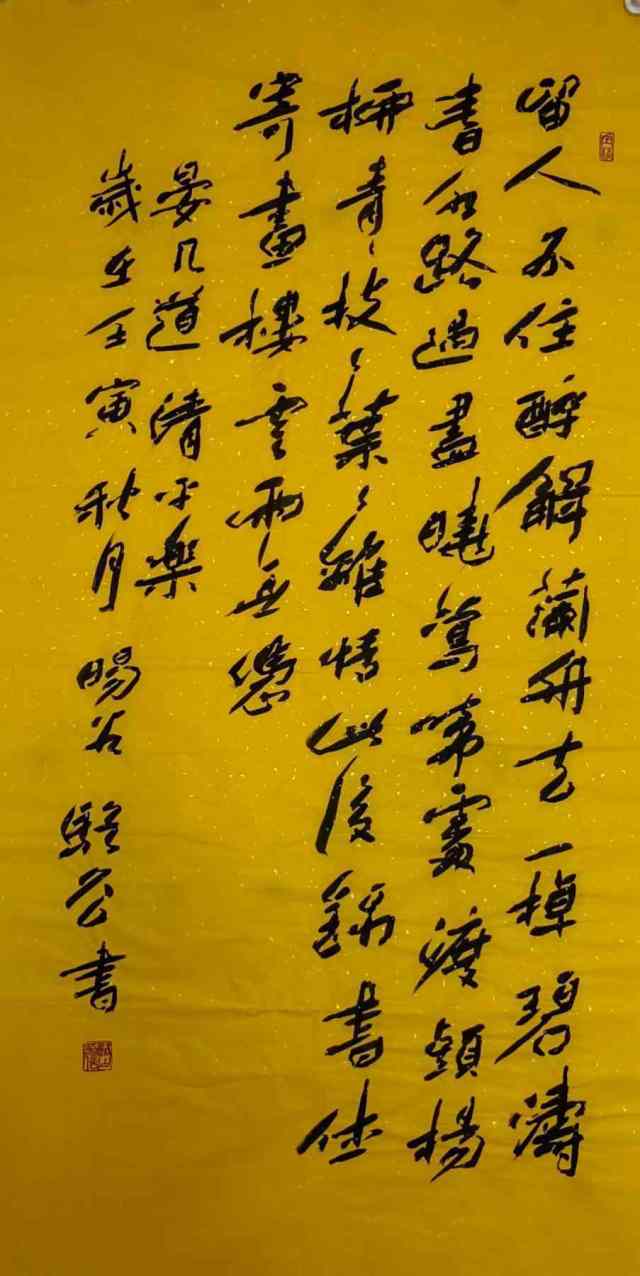 留人不住醉解蘭舟去一棹碧濤
春水路過盡曉鶯啼處渡頭楊
柳青々枝々葉々離情此後錦書休
寄畫樓雲雨無憑
晏几道清平樂
歲在壬寅秋月暘谷公書